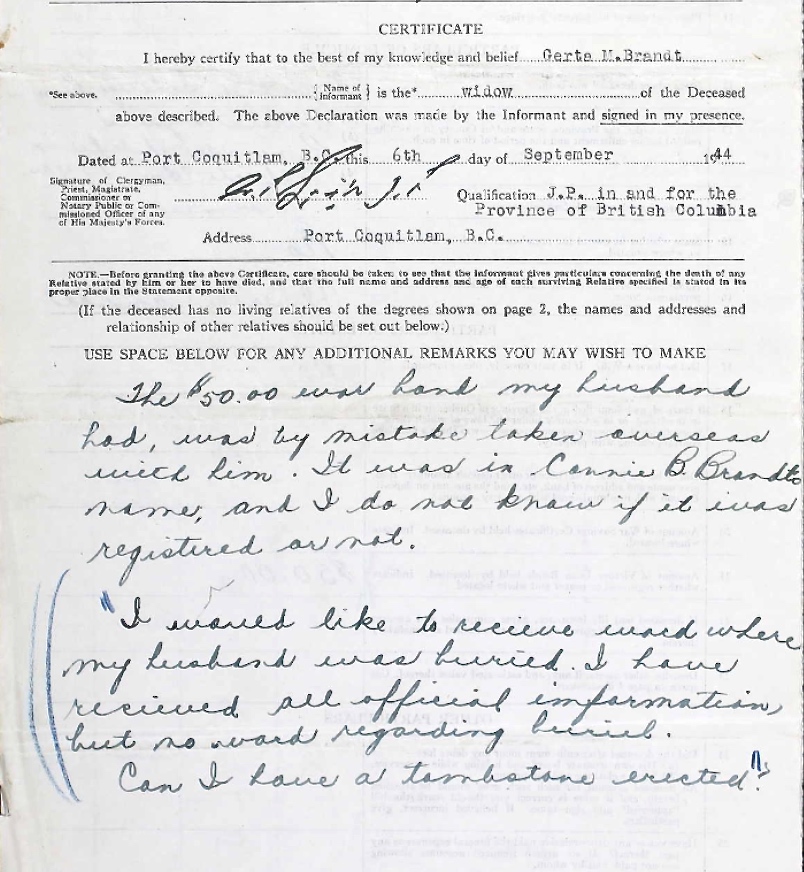 CERTIFICATE
I hereby certify that to the best of my knowledge and belief Gerta M.Brandt
*See above. {Name of Informant} is the* widow of the Deceased
above described. The above Declaration was made by the Informant and signed in my presence.
Dated at Port Coquitlam, B.C. this 6th day of September 1944
Signature of Clergyman,
Priest, Magistrate,
Commissioner or
Notary Public or Com-
missioned Officer of any
of His Majesty's Forces.
Qualification J.P. in and for the
Province of British Columbia
Address Port Coquitlam, B.C.
NOTE.—Before granting the above Certificate, care should be taken to see that the informant gives particulars concerning the death of any
Relative stated by him or her to have died, and that the full name and address and age of each surviving Relative specified is stated in its
proper place in the Statement opposite.
(If the deceased has no living relatives of the degrees shown on page 2, the names and addresses and
relationship of other relatives should be set out below.)
USE SPACE BELOW FOR ANY ADDITIONAL REMARKS YOU MAY WISH TO MAKE
The $50.00 war bond my husband
had, was by mistake taken overseas
with him. It was in Connie B. Brandts
name, and I do not know if it was
registered or not.
"I would like to recieve word where
my husband was buried. I have
recieved all official information,
but no word regarding buriel.
Can I have a tombstone erected"?